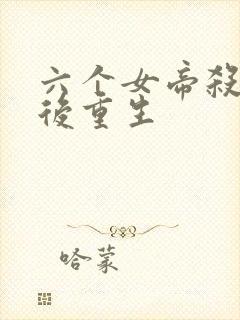 六个女帝殺
後重生
哈蒙